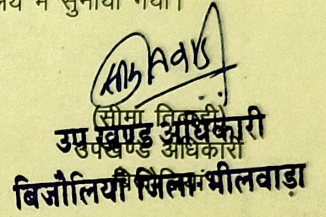 में सुनाया गया।
(सीमा तिवाड़ी)
उप खण्ड अधिकारी
उपखण्ड अधिकारी
बिजौलियाँ जिला भीलवाड़ा